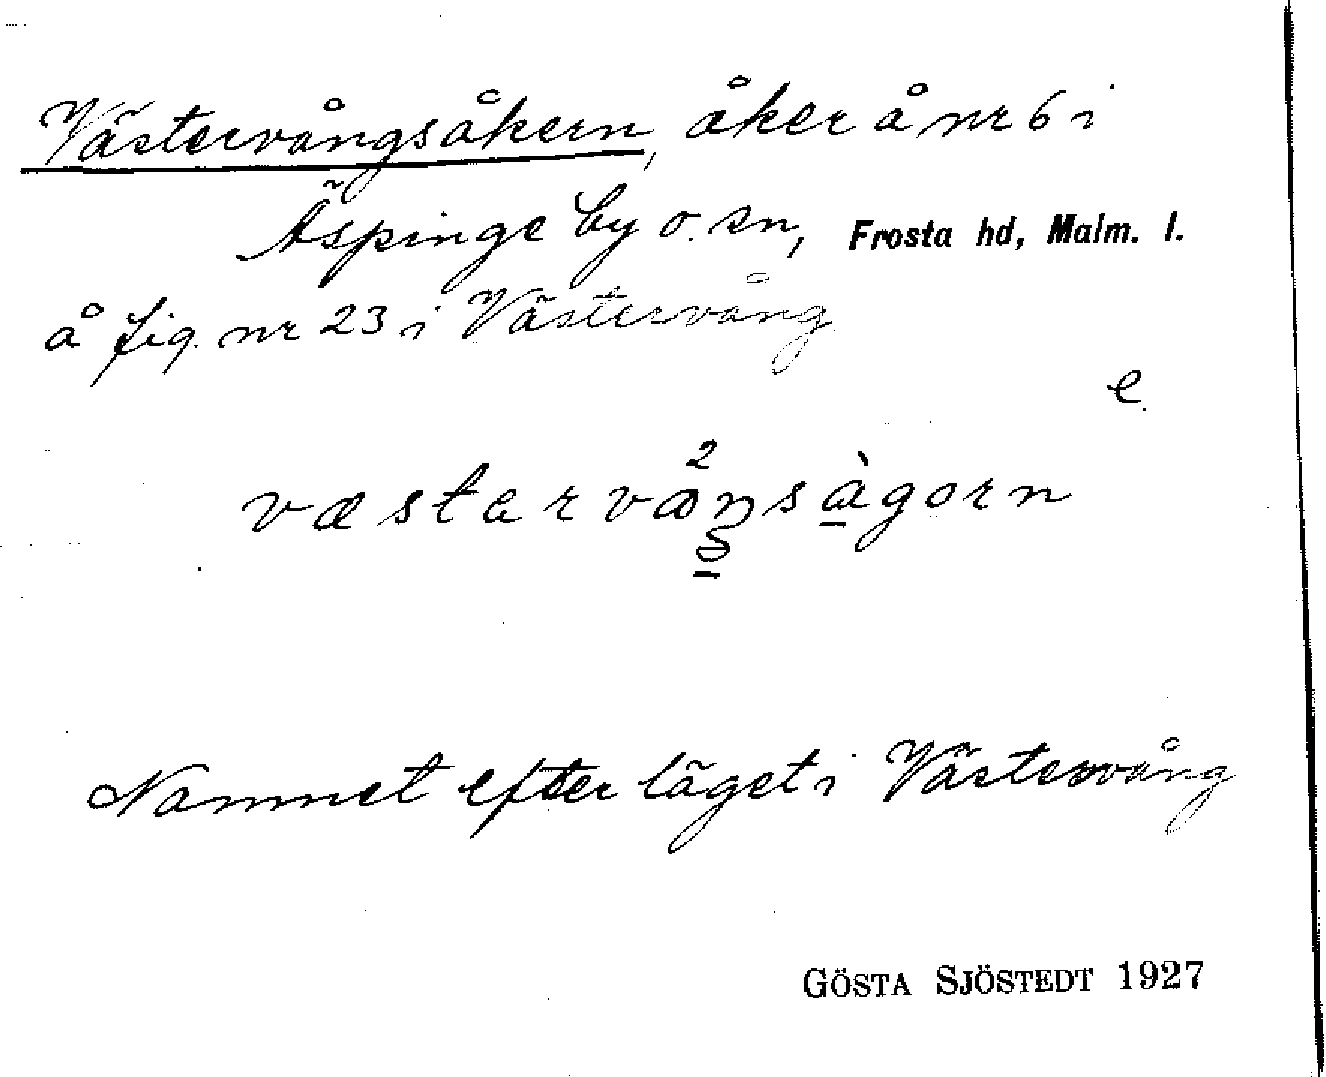 Västervångsåkern, åker å nr 6 i
Äspinge by o. sn, Frosta hd, Malm. l.
å fig. nr 23 i Västervång
e.
Namnet efter läget i Västervång
GÖSTA SJÖSTEDT 1927